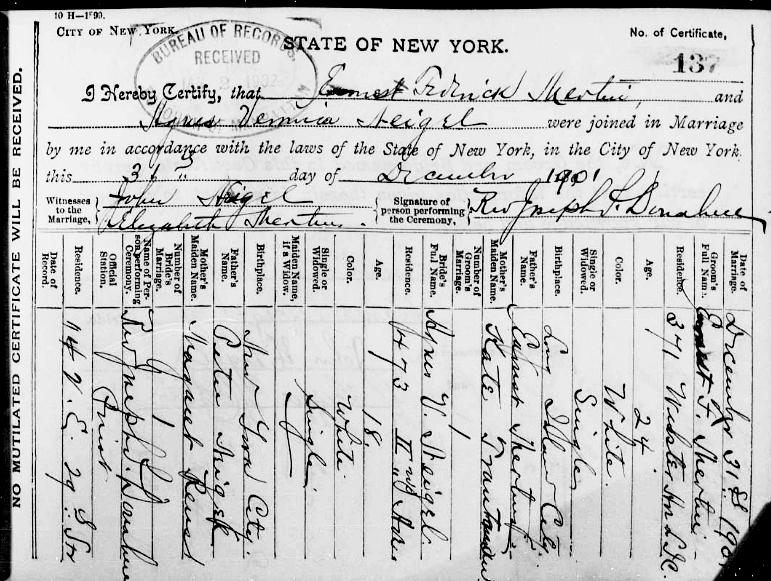 10 H—1'99.
CITY OF NEW YORK.
BUREAU OF RECORDS
RECEIVED
STATE OF NEW YORK.
No. of Certificate,
137
I Hereby Certify, that Ernest Fredrick Mertin, and
Agnes Veronica Neigel were joined in Marriage
by me in accordance with the laws of the State of New York, in the City of New York,
this 31st day of December 1901
Witnesses to the Marriage, John Neigel
Elizabeth Mertin.
Signature of person performing the Ceremony, Rev Joseph F. Donahue
NO MUTILATED CERTIFICATE WILL BE RECEIVED.
Date of Marriage. December 31st 1901
Groom's Full Name. Ernest F. Mertin
Residence. 371 Webster
Age. 24
Color. White
Single or Widowed. Single
Birthplace. City
Father's Name. Ernest Mertin
Mother's Maiden Name. Kate
Number of Groom's Marriage. 1
Bride's Full Name. Agnes V. Neigel
Residence. 473 Ave
Age. 18
Color. White
Single or Widowed. Single
Maiden Name, if a Widow.
Birthplace. New York City.
Father's Name. Peter Neigel
Mother's Maiden Name. Margaret
Number of Bride's Marriage. 1
Name of Person performing Ceremony. Rev Joseph F. Donahue
Official Station. Priest
Residence. 142 E. 29th St
Date of Record.